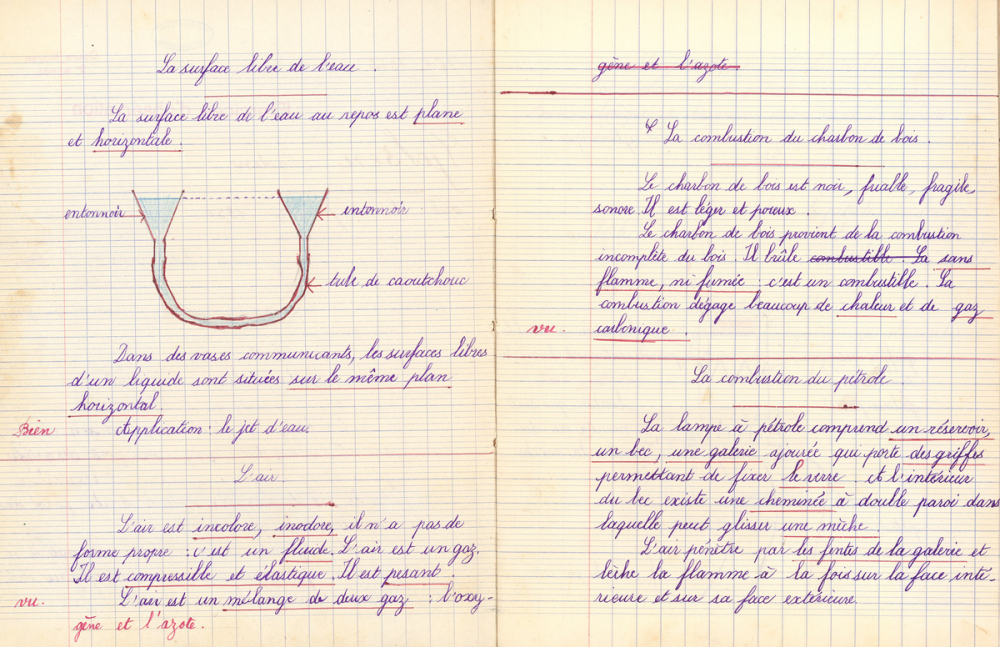 La surface libre de l'eau.
La surface libre de l'eau au repos est plane
et horizontale.
entonnoir
entonnoir
tube de caoutchouc
Dans des vases communicants, les surfaces libres
d'un liquide sont situées sur le même plan
horizontal.
Bien
Application : le jet d'eau.
L'air.
L'air est incolore, inodore, il n'a pas de
forme propre : c'est un fluide. L'air est un gaz.
Il est compressible et élastique. Il est pesant
vu.
L'air est un mélange de deux gaz : l'oxy-
gène et l'azote.
gène et l'azote.
La combustion du charbon de bois.
Le charbon de bois est noir, friable, fragile,
sonore. Il est léger et poreux.
Le charbon de bois provient de la combustion
incomplète du bois. Il brûle combustible. La sans
flamme, ni fumée : c'est un combustible. La
combustion dégage beaucoup de chaleur et de gaz
vu.
carbonique.
La combustion du pétrole
La lampe à pétrole comprend un réservoir,
un bec, une galerie ajourée qui porte des griffes
permettant de fixer le verre. et l'intérieur
du bec existe une cheminée à double paroi dans
laquelle peut glisser une mèche.
L'air pénètre par les fentes de la galerie et
lèche la flamme à la fois sur la face inté-
rieure et sur sa face extérieure.